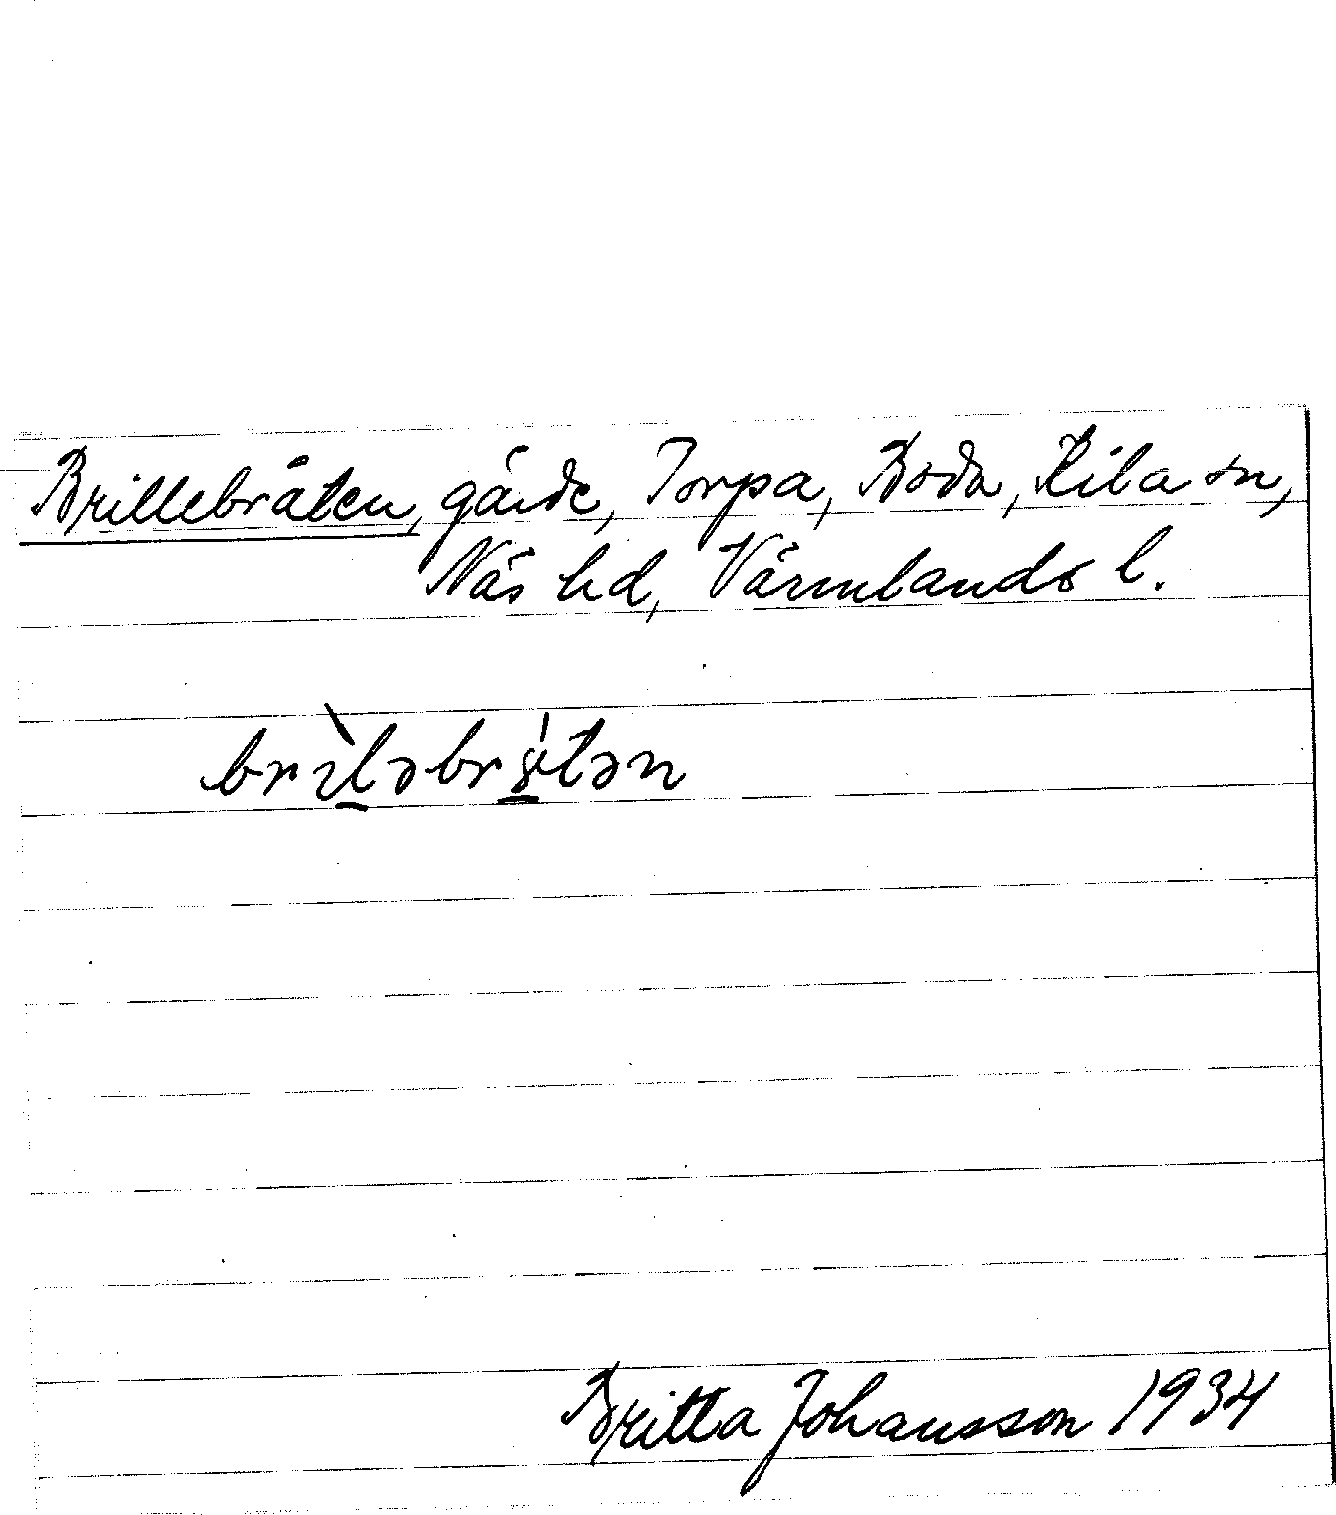 Brillebråten, gärde, Torpa, Boda, Kila sn,
Näs hd, Värmlands l.
brìləbrɤ́tən
Britta Johansson 1934